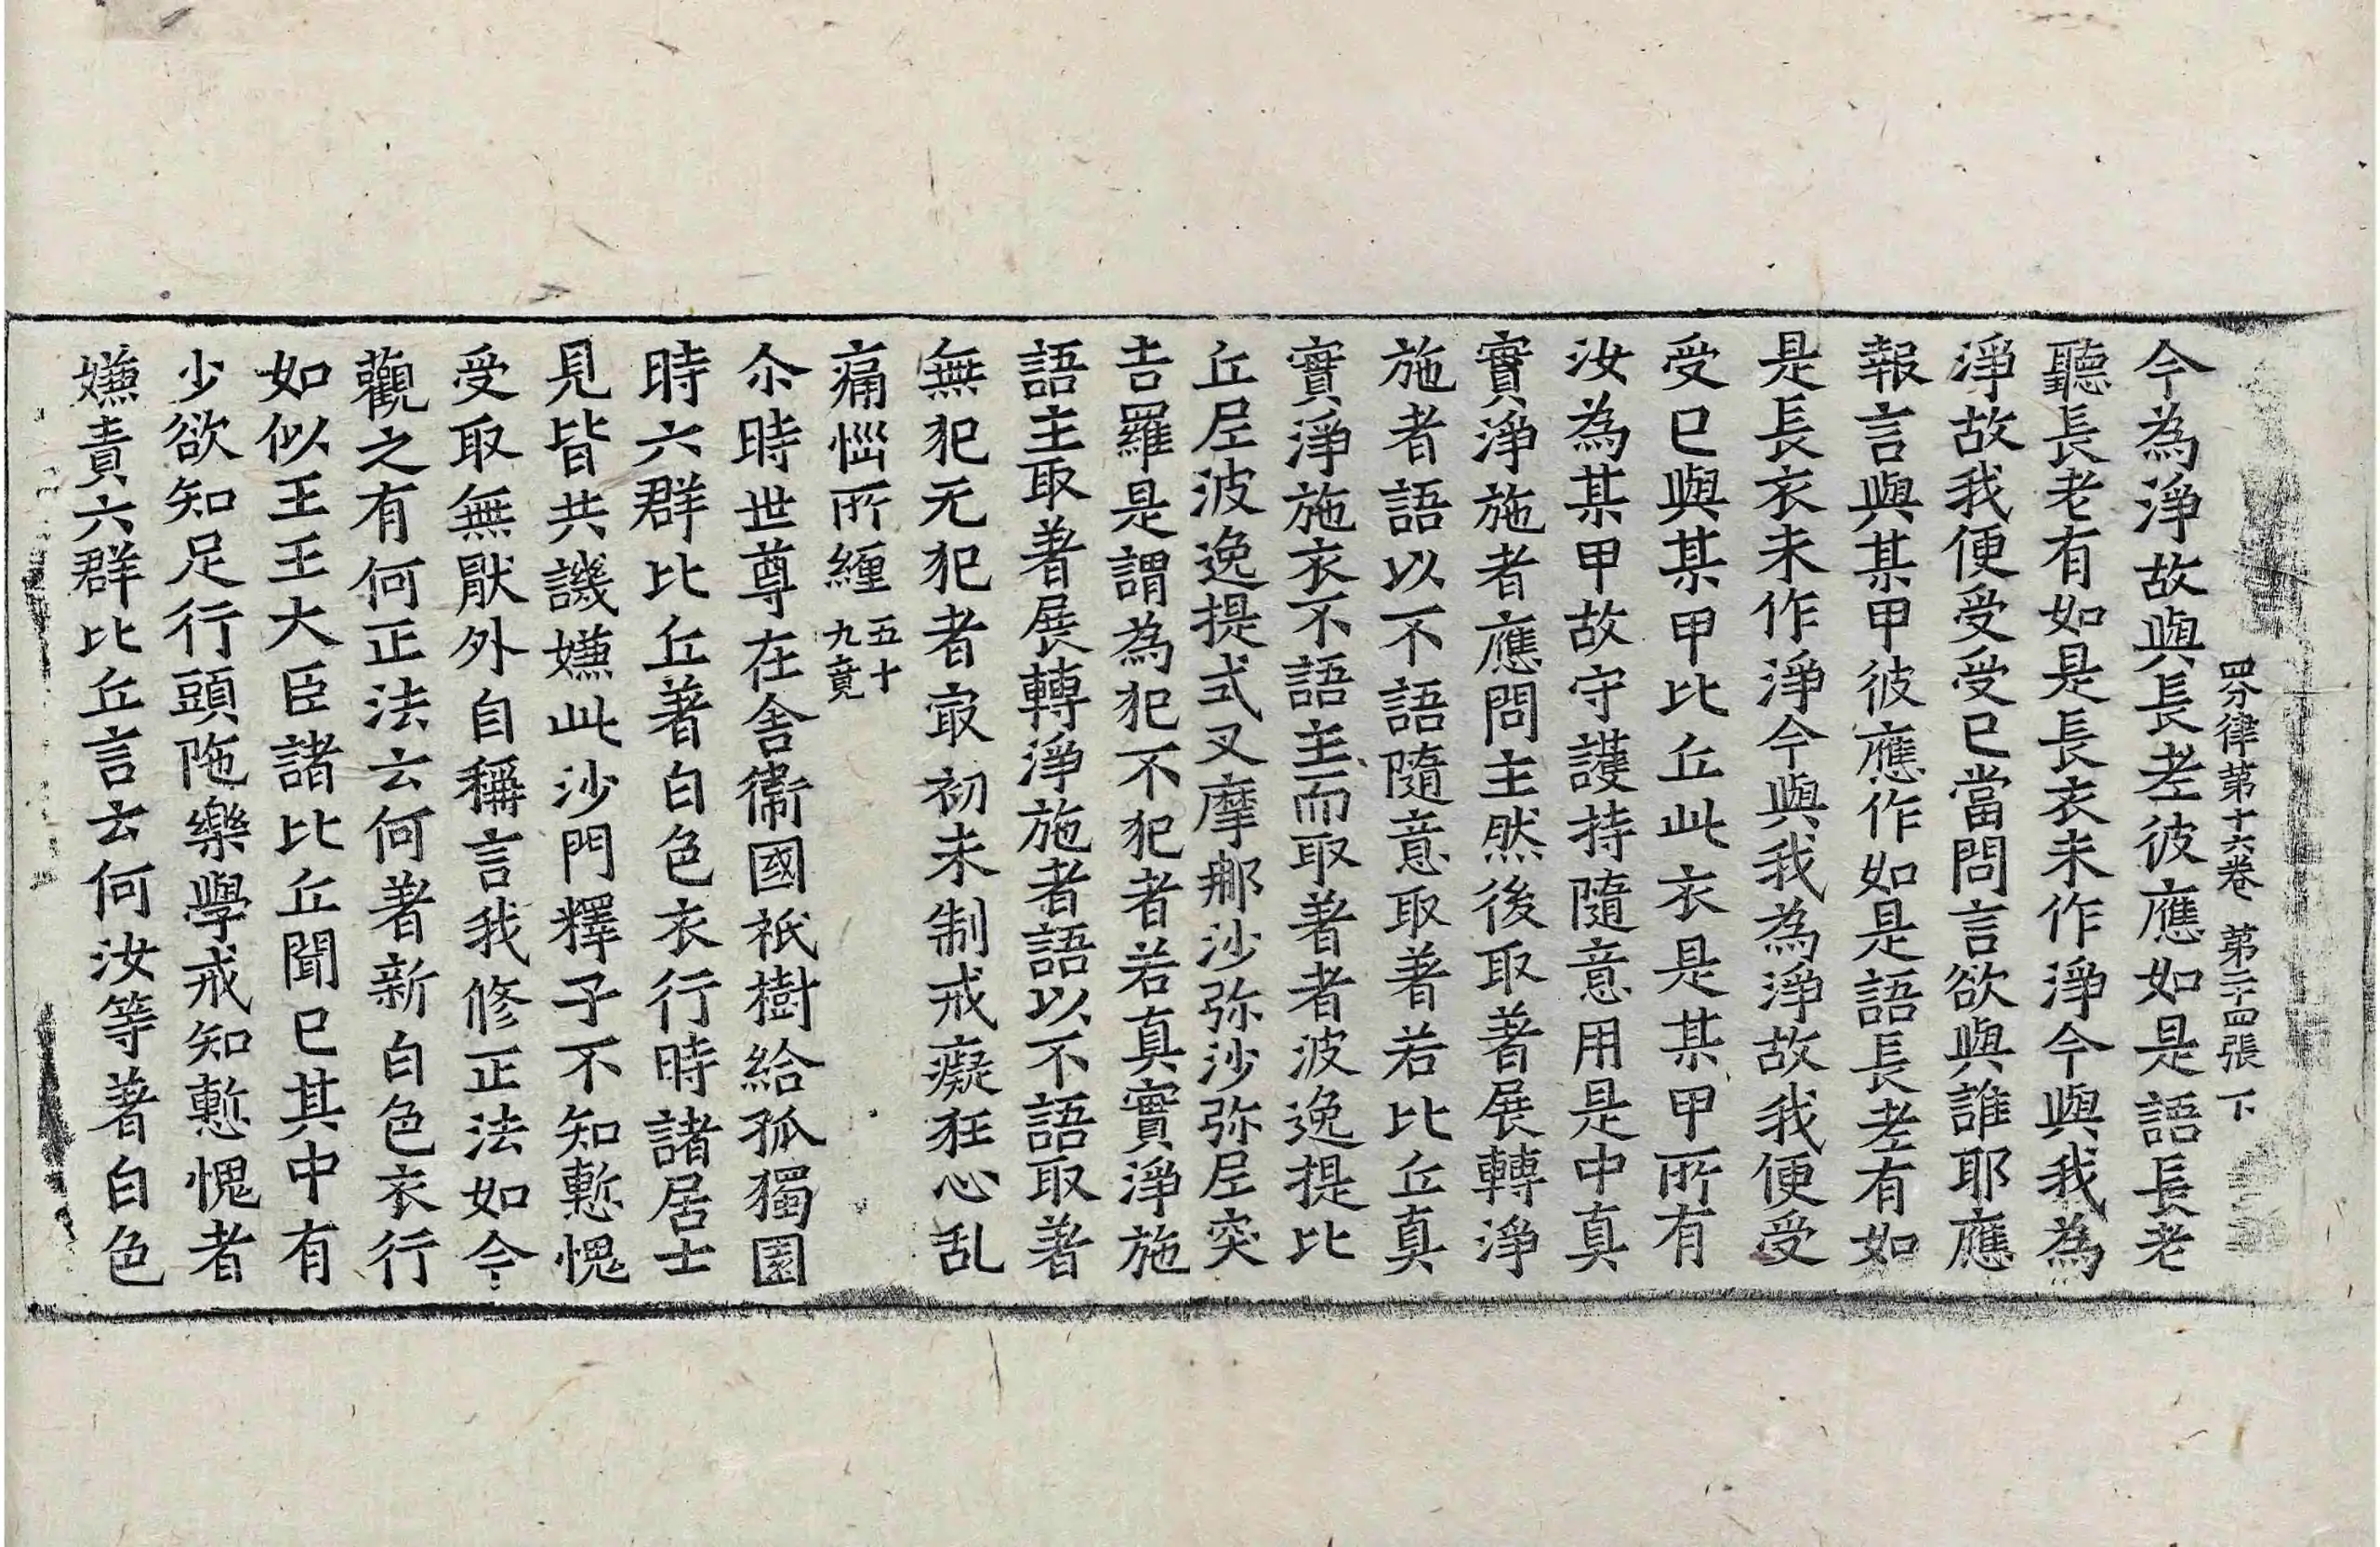 四分律第十六卷 第二十四張 下
今為淨故與長老彼應如是語長老
聽長老有如是長衣未作淨今與我為
淨故我便受受已當問言欲與誰耶應
報言與某甲彼應作如是語長老有如
是長衣未作淨今與我為淨故我便受
受已與某甲比丘此衣是某甲所有
汝為某甲故守護持隨意用是中真
實淨施者應問主然後取著展轉淨
施者語以不語隨意取著若比丘真
實淨施衣不語主而取著者波逸提比
丘尼波逸提式叉摩那沙弥沙弥尼突
吉羅是謂為犯不犯者若真實淨施
語主取著展轉淨施者語以不語取著
無犯无犯者㝡初未制戒癡狂心乱
痛惱所纏五十九竟
尒時世尊在舍衛國祇樹給孤獨園
時六群比丘著白色衣行時諸居士
見皆共譏嫌此沙門釋子不知慙愧
受取無猒外自稱言我修正法如今
觀之有何正法云何著新白色衣行
如似王王大臣諸比丘聞已其中有
少欲知足行頭陁樂學戒知慙愧者
嫌責六群比丘言云何汝等著白色